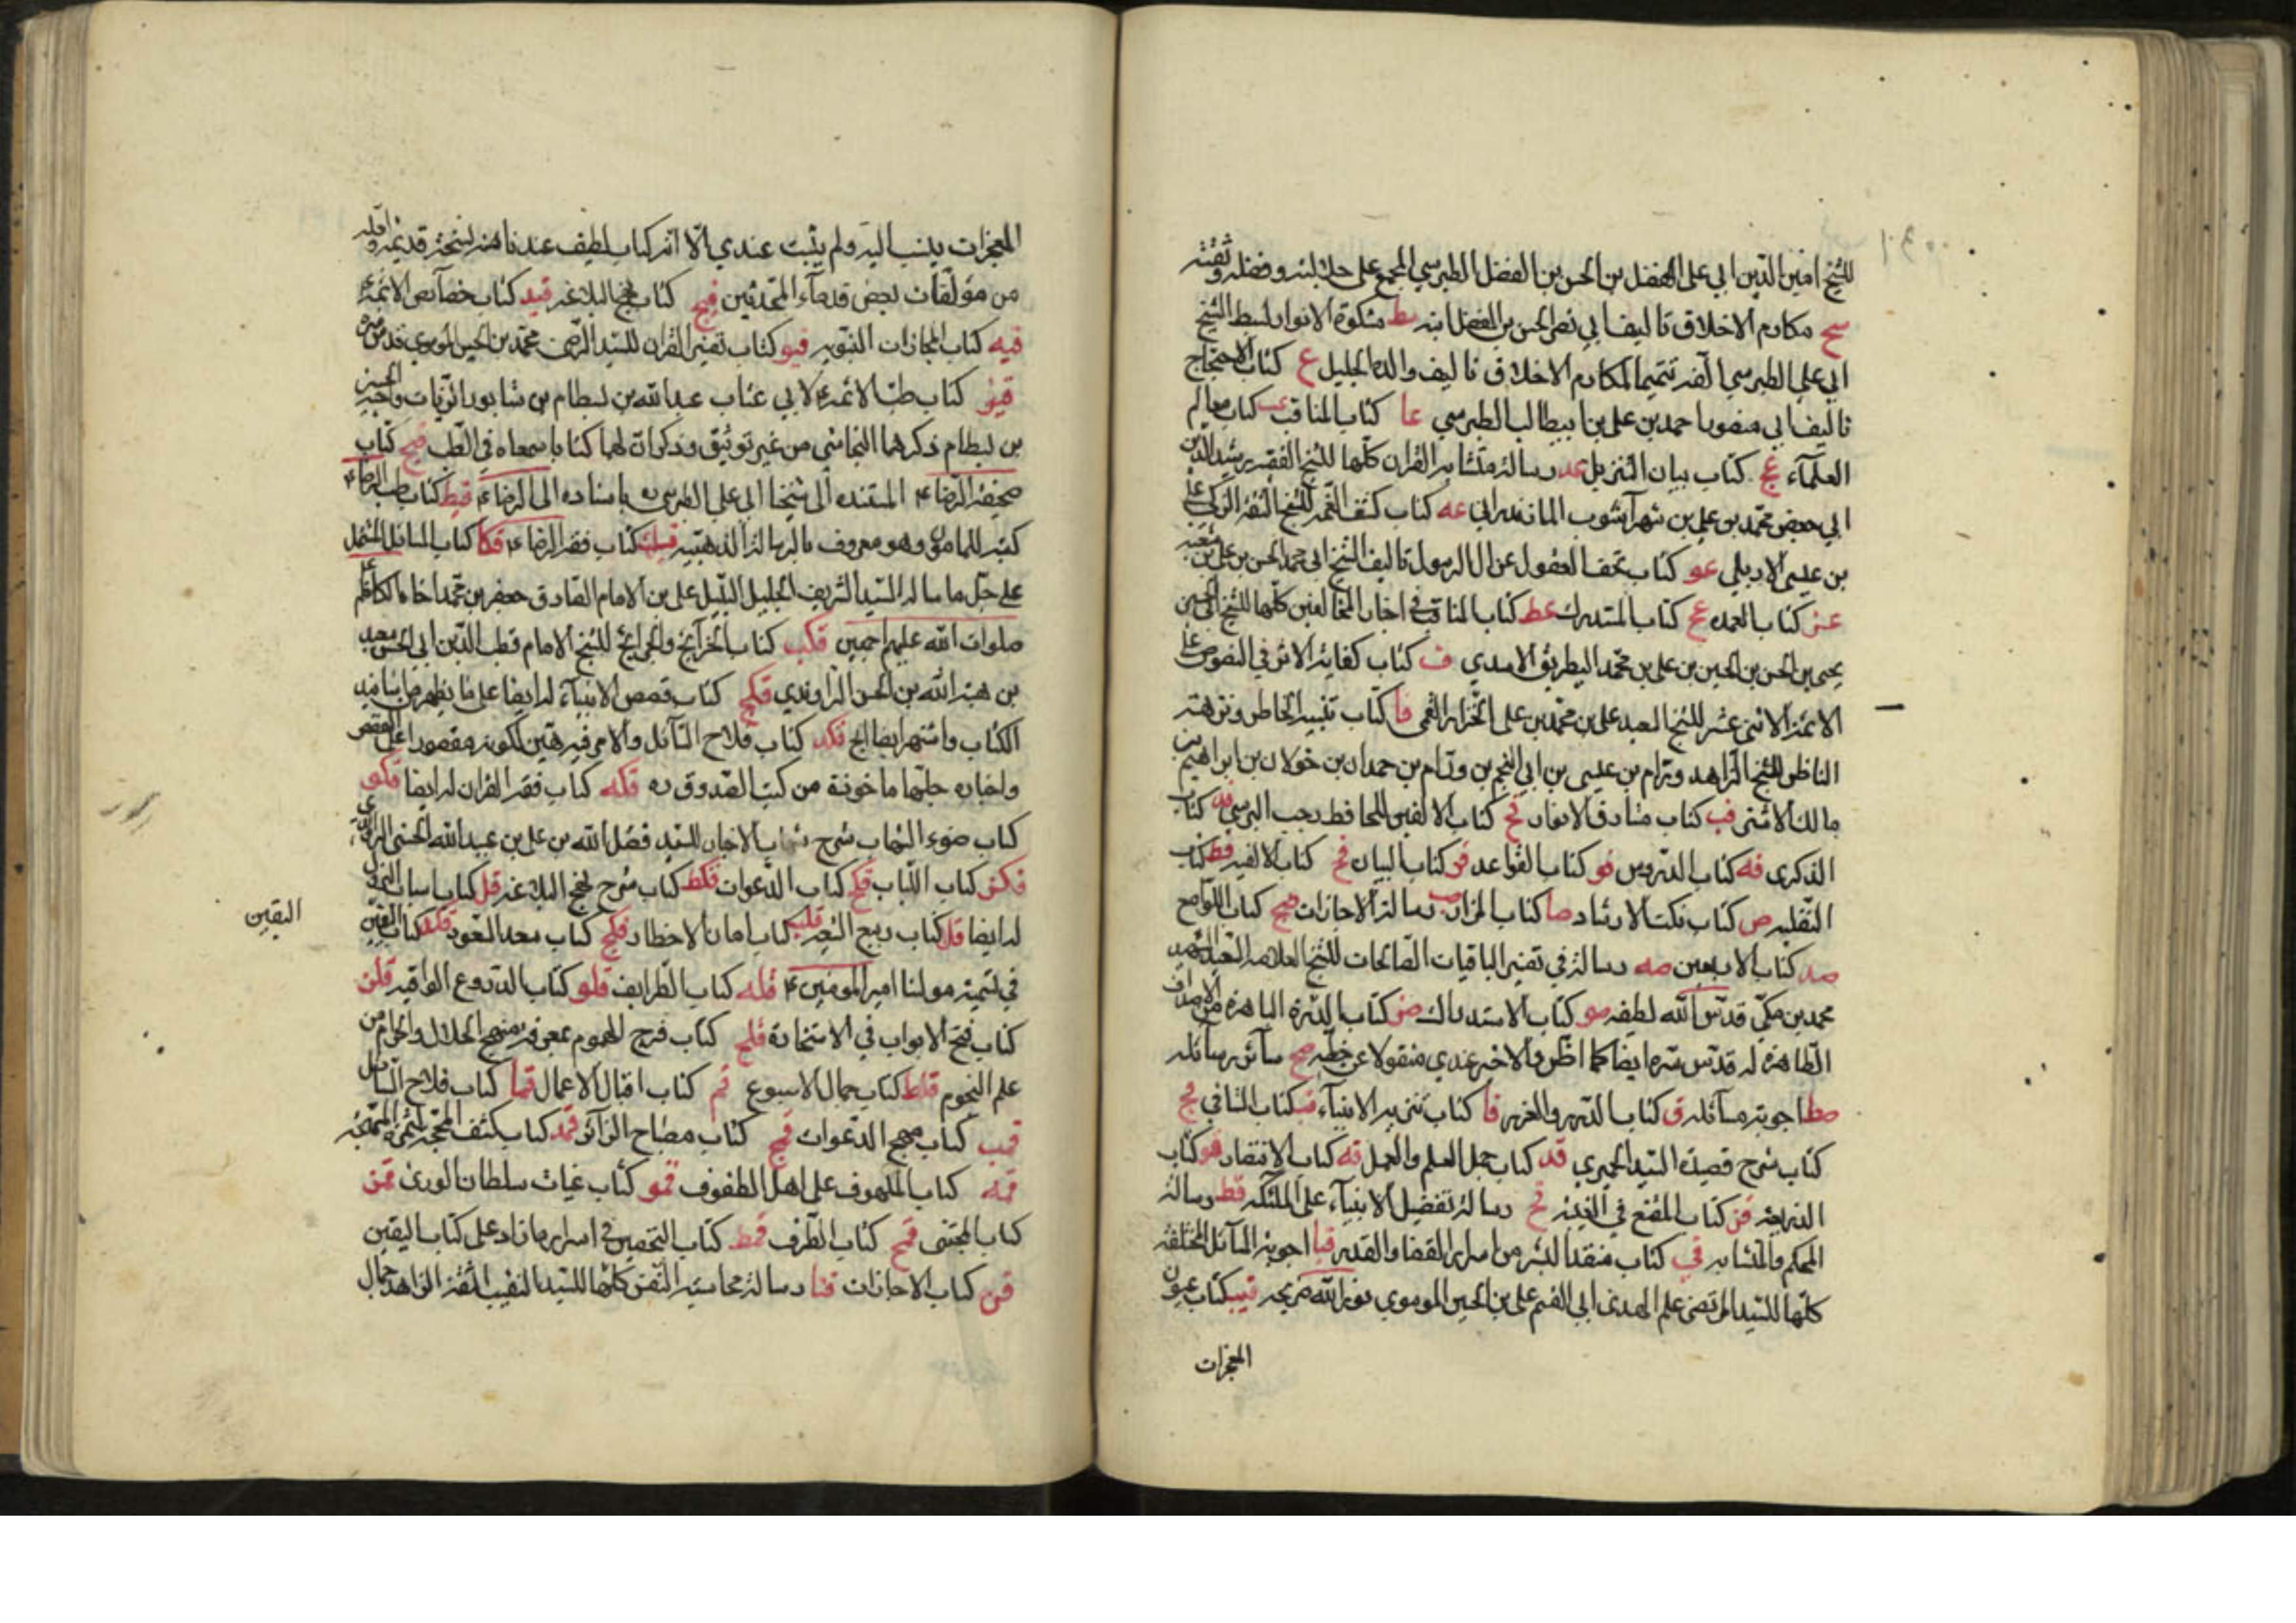 للشيخ امين الدين ابي علي الفضل بن الحسن بن الفضل الطبرسي المجمع على جلالته وفضله وثقته
سح مكارم الاخلاق تاليف ابي نصر الحسن بن الفضل ابنه سط مشكوة الانوار لسبط الشيخ
ابي علي الطبرسي الفه تتميما لمكارم الاخلاق تاليف والده الجليل ع كتاب الاحتجاج
تاليف ابي منصور احمد بن علي بن ابيطالب الطبرسي عا كتاب المناقب عب كتاب معالم
العلمآء عج كتاب بيان التنزيل عد رسالة متشابه القران كلها للشيخ الفقيه رشيد الدين
ابي جعفر محمد بن علي بن شهرآشوب المازندراني عه كتاب كشف الغمه للشيخ الثقة الزكي علي
بن عيسى الاربلي عو كتاب تحف العقول عن ال الرسول تاليف الشيخ ابي محمد الحسن بن علي بن شعبه
عز كتاب العمده عح كتاب المستدرك عط كتاب المناقب في اخبار المخالفين كلها للشيخ ابي الحسين
يحيى بن الحسن بن الحسين بن علي بن محمد البطريق الاسدي ف كتاب كفاية الاثر في النصوص على
الائمة الاثنى عشر للشيخ السعيد علي بن محمد بن علي الخزاز القمي فا كتاب تنبيه الخاطر ونزهة
الناظر للشيخ الزاهد ورام بن عيسى بن ابي النجم بن ورام بن حمدان بن خولان بن ابراهيم بن
مالك الاشتر فب كتاب مشارق الانوار فج كتاب الالفين للحافظ رجب البرسي فد كتاب
الذكرى فه كتاب الدروس فو كتاب القواعد فز كتاب البيان فح كتاب الالفيه فط كتاب
النفليه ص كتاب نكت الارشاد صا كتاب المزار صب رسالة الاجازات صج كتاب اللوامع
صد كتاب الاربعين صه رسالة في تفسير الباقيات الصالحات للشيخ العلامه السعيد الشهيد
محمد بن مكي قدس الله لطيفه صو كتاب الاستدراك صز كتاب الدرة الباهرة من الاصداف
الطاهرة له قدس سره ايضا كما اظن والاخير عندي منقولا عن خطه صح سآئر رسائله
صط اجوبة مسآئله ق كتاب الدرر والغرر قا كتاب تنزيه الانبيآء قب كتاب الشافي قج
كتاب شرح قصيدة السيد الحميري قد كتاب جمل العلم والعمل قه كتاب الانتصار قو كتاب
الذريعة قز كتاب المقنع في الغيبة قح رسالة تفضيل الانبيآء على الملئكه قط رسالة
المحكم والمتشابه قي كتاب منقذ البشر من اسرار القضا والقدر قيا اجوبة المسآئل المختلفة
كلها للسيد المرتضى علم الهدى ابي القسم علي بن الحسين الموسوي نور الله ضريحه قيب كتاب عيون
المعجزات
المعجزات ينسب اليه ولم يثبت عندي الا انه كتاب لطيف عندنا منه نسخة قديمة ولعله
من مؤلفات بعض قدمآء المحدثين قيج كتاب نهج البلاغه قيد كتاب خصآئص الائمة ع
قيه كتاب المجازات النبويه قيو كتاب تفسير القران للسيد الرضي محمد بن الحسين الموسوي قدس سره
قيز كتاب طب الائمة ع لابي عتاب عبد الله بن بسطام بن شابور الزيات واخيه الحسين
بن بسطام ذكرهما النجاشي من غير توثيق وذكر ان لهما كتابا جمعاه في الطب قيح كتاب
صحيفة الرضا ع المستنده الى شيخنا ابي علي الطبرسي ره باسناده الى الرضا ع قيط كتاب طب الرضا ع
كتبه للمامون وهو معروف بالرسالة الذهبيه قك كتاب فقه الرضا ع قكا كتاب المسائل المشتمل
على جل ما ساله السيد الشريف الجليل النبيل علي بن الامام الصادق جعفر بن محمد اخاه الكاظم
صلوات الله عليهم اجمعين قكب كتاب الخرآئج والجرايح للشيخ الامام قطب الدين ابي الحسن سعيد
بن هبة الله بن الحسن الراوندي قكج كتاب قصص الانبيآء له ايضا على ما يظهر من اسانيد
الكتاب واشتهر ايضا الخ قكد كتاب فلاح السآئل والامر فيه هين لكونه مقصورا على القصص
واخباره جلها ماخوذة من كتب الصدوق ره قكه كتاب فقه القران له ايضا قكو
كتاب ضوء الشهاب شرح شهاب الاخبار للسيد فضل الله بن علي بن عبيد الله الحسني الراوندي
قكز كتاب اللباب قكح كتاب الدعوات قكط كتاب شرح نهج البلاغه قل كتاب اسباب النزول
له ايضا قلا كتاب ربيع الشيعه قلب كتاب امان الاخطار قلج كتاب سعد السعود قلد كتاب اليقين
اليقين
في تسمية مولنا امير المؤمنين ع قله كتاب الطرايف قلو كتاب الدروع الواقيه قلز
كتاب فتح الابواب في الاستخارة قلح كتاب فرج المهموم بمعرفة منهج الحلال والحرام من
علم النجوم قلط كتاب جمال الاسبوع قم كتاب اقبال الاعمال قما كتاب فلاح السآئل
قمب كتاب مهج الدعوات قمج كتاب مصباح الزآئر قمد كتاب كشف المحجة لثمرة المهجة
قمه كتاب الملهوف على اهل الطفوف قمو كتاب غياث سلطان الورى قمز
كتاب المجتنى قمح كتاب الطرف قمط كتاب التحصين في اسرار ما زاد على كتاب اليقين
قن كتاب الاجازات قنا رسالة محاسبة النفس كلها للسيد النقيب الثقة الزاهد جمال